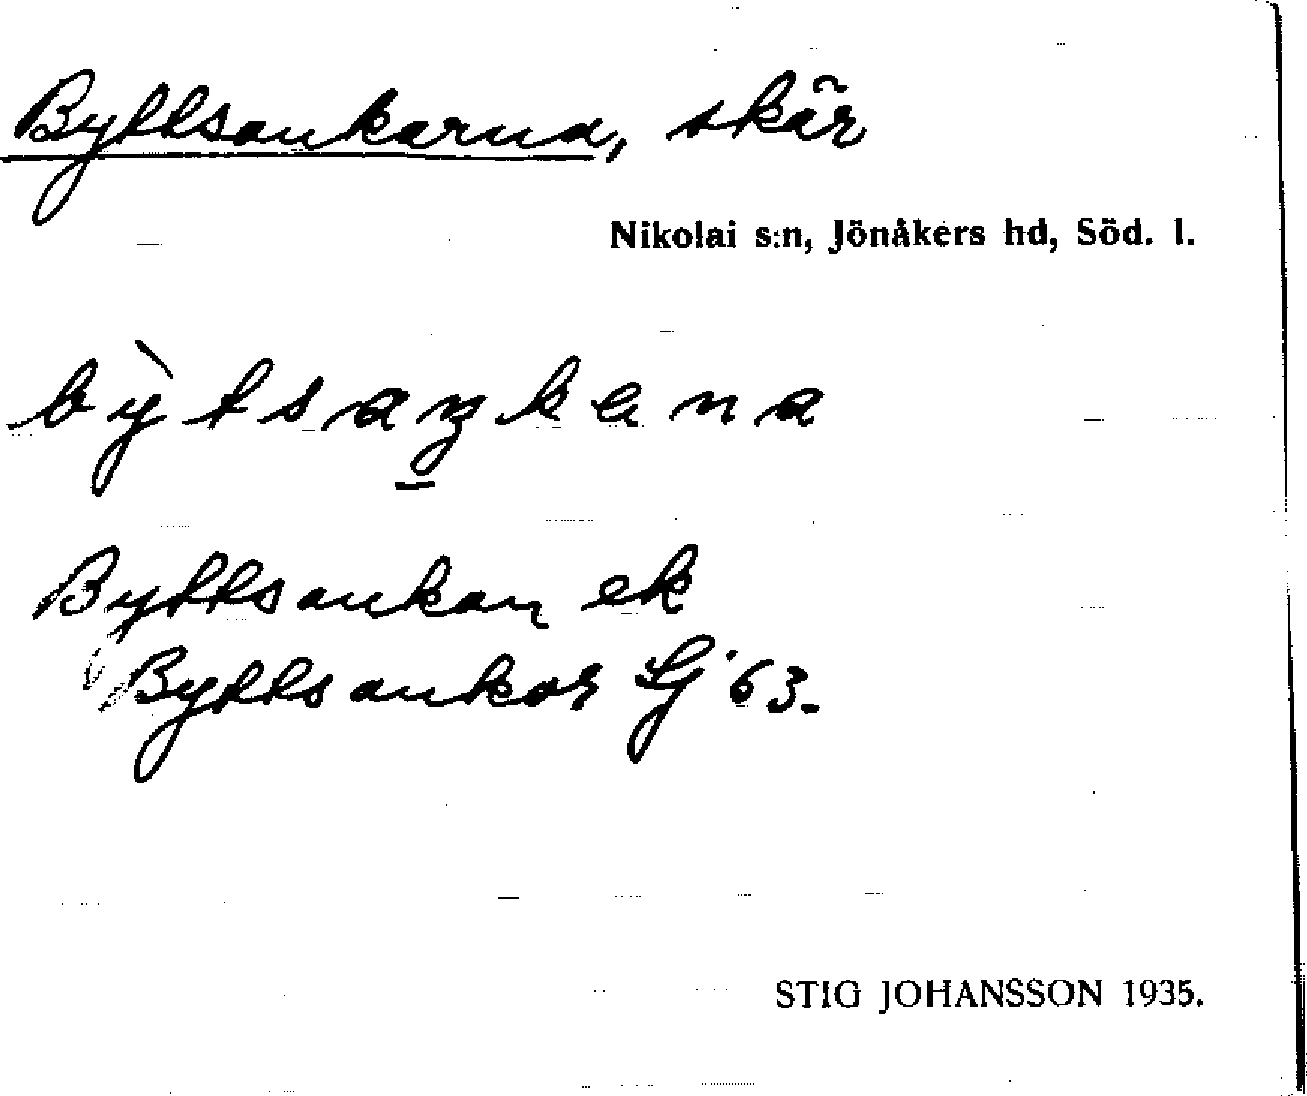 Byttsankarna, skär
Nikolai s:n, Jönåkers hd, Söd. l.
bỳtsaŋkana
Byttsankan ek
Byttsankor Lj 63.
STIG JOHANSSON 1935.